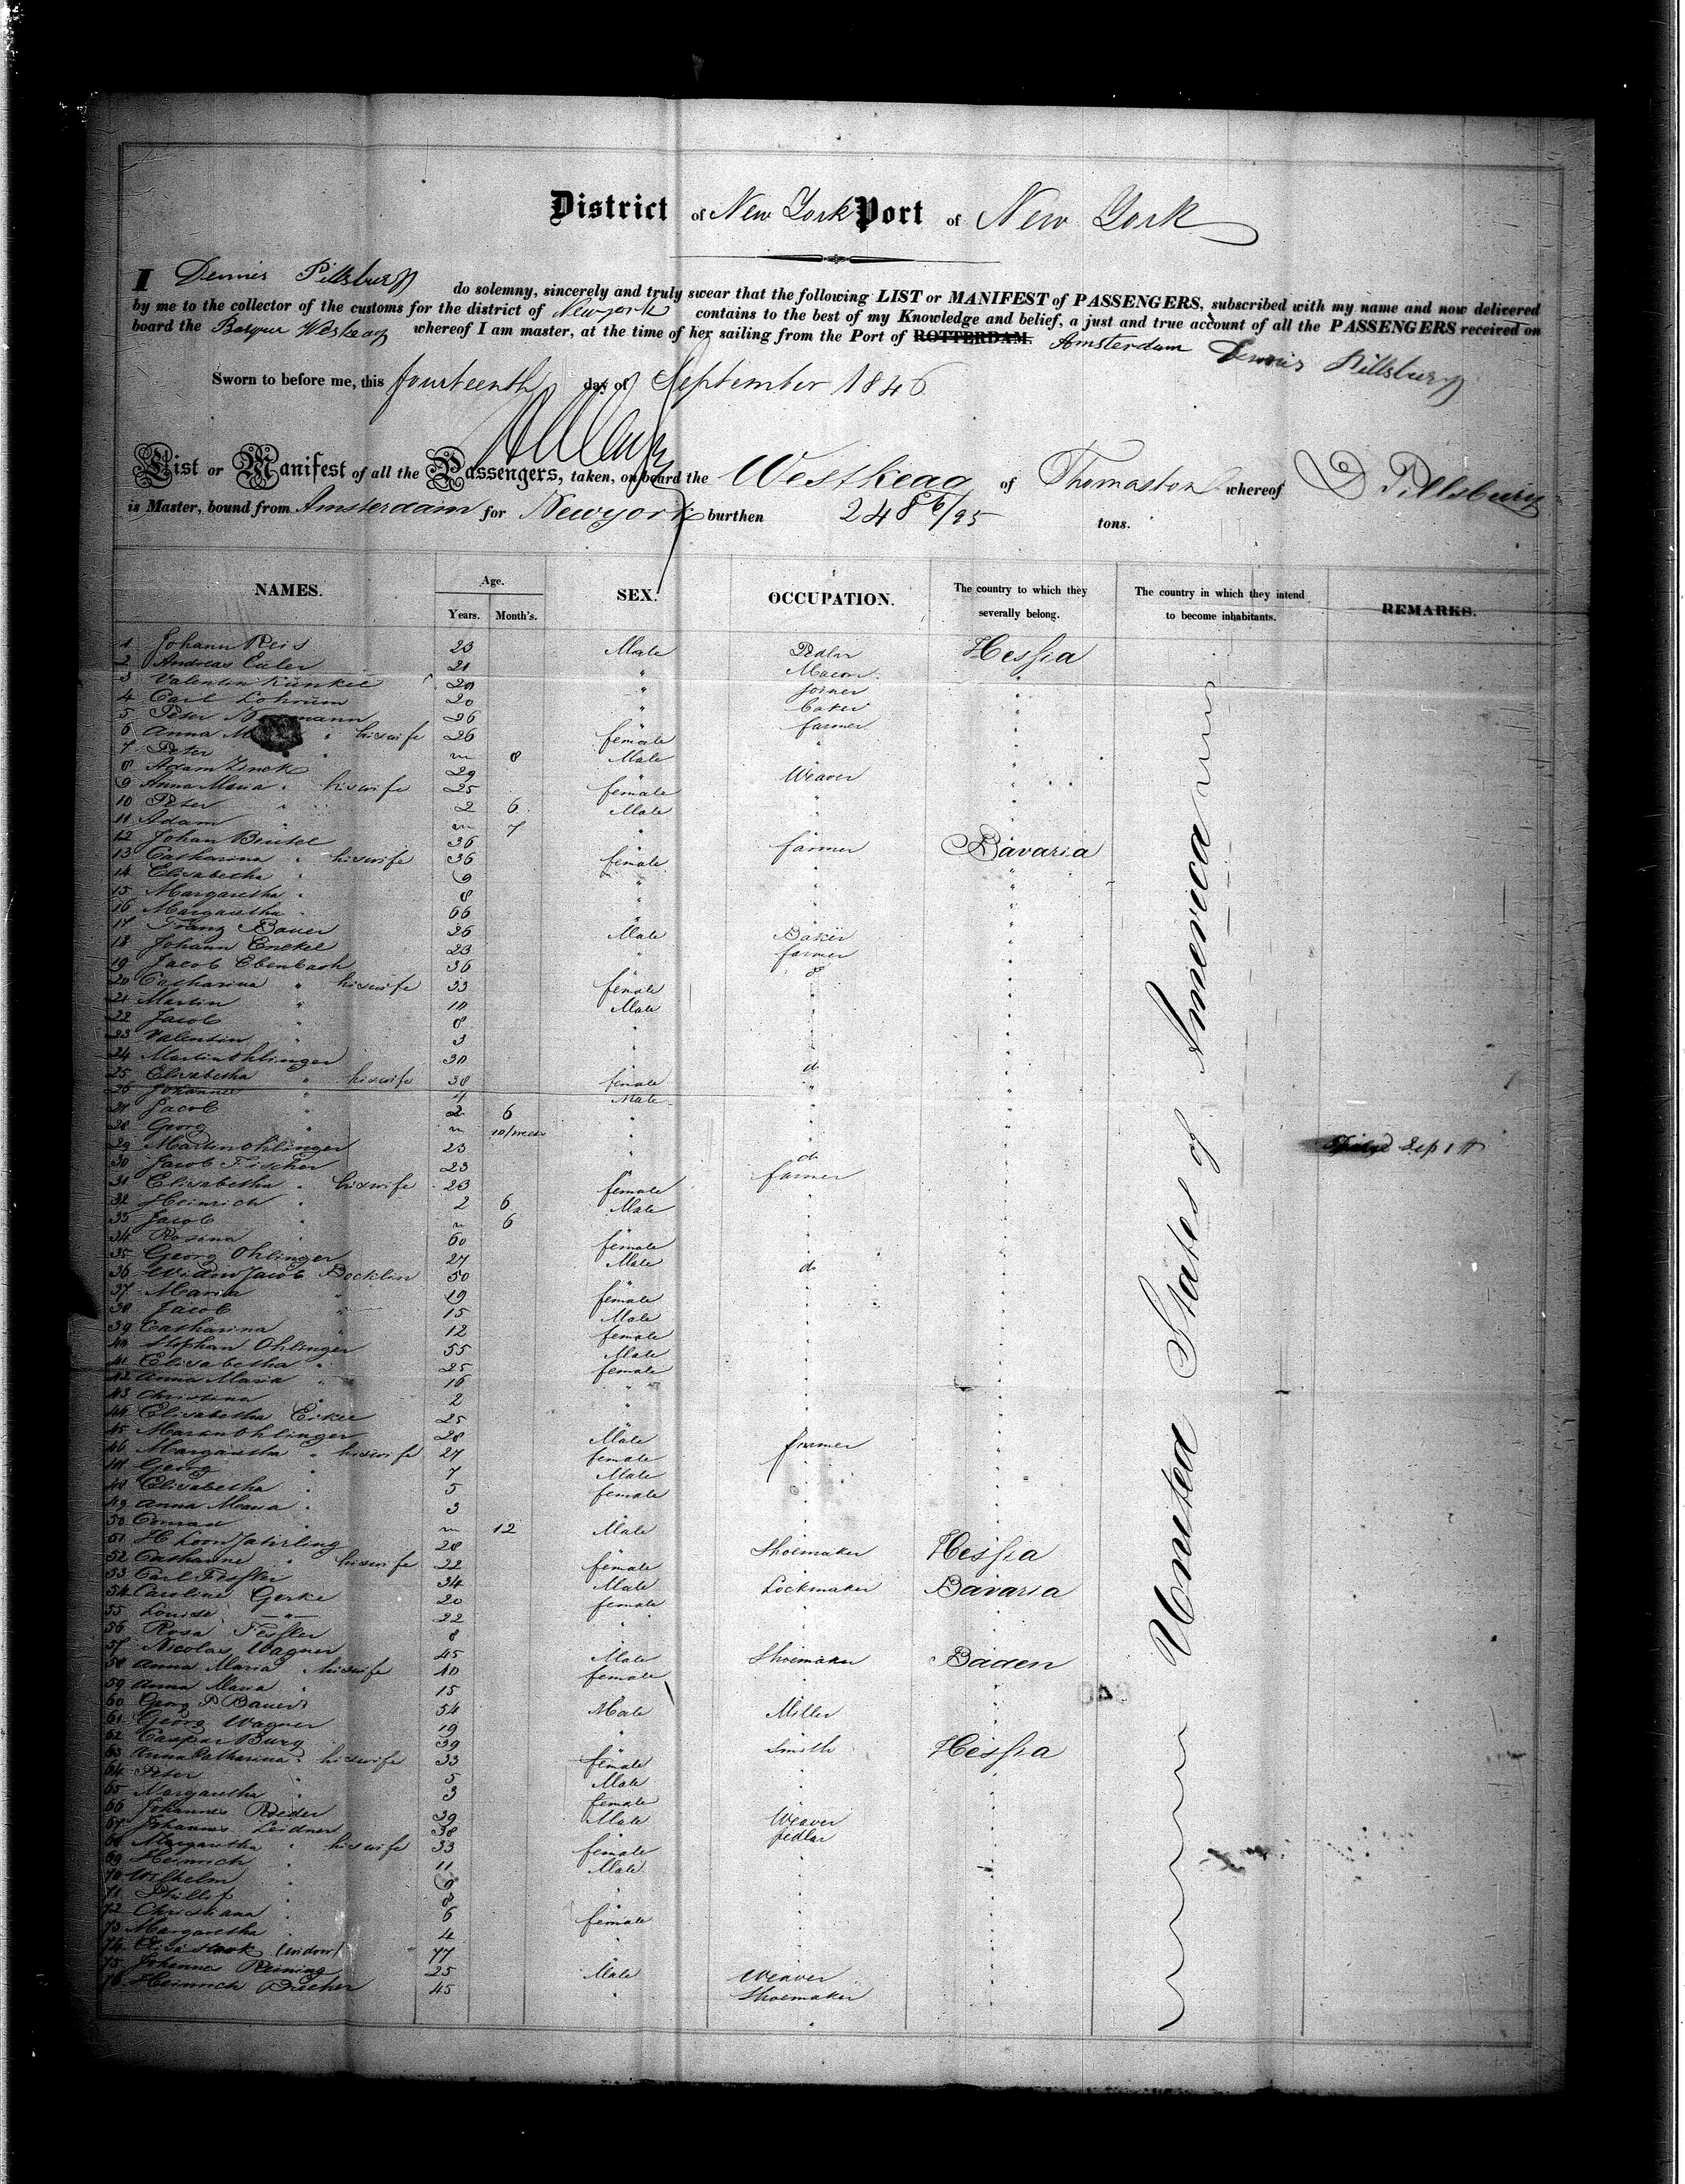 District of New York Port of New York
I Dennis Pillsbury do solemny, sincerely and truly swear that the following LIST or MANIFEST of PASSENGERS, subscribed with my name and now delivered
by me to the collector of the customs for the district of Newyork contains to the best of my Knowledge and belief, a just and true account of all the PASSENGERS received on
board the Barque Weskeag whereof I am master, at the time of her sailing from the Port of ROTTERDAM. Amsterdam Dennis Pillsbury
Sworn to before me, this fourteenth day of September 1846
List or Manifest of all the Passengers, taken, on board the Weskeag of Thomaston whereof D Pillsbury
is Master, bound from Amsterdam for Newyork burthen 248 86/95 tons.
NAMES. Age. Years. Month's. SEX. OCCUPATION. The country to which they severally belong. The country in which they intend to become inhabitants. REMARKS.
United States of America
1 Johann Reis 23 Male Pedlar Hessia
2 Andreas Euler 21 " Macon "
3 Valentin Kunkel 20 " Joiner "
4 Carl Lohrum 20 " baker "
5 Peter 26 " farmer "
6 Anna " his wife 26 female " "
7 Peter " 8 Male "
8 Adam Zinck 29 " Weaver "
9 Anna Maria " his wife 25 female " "
10 Peter " 2 6 Male "
11 Adam " 7 "
12 Johan Beutel 36 " farmer Bavaria
13 Catharina " his wife 36 female " "
14 Elisabetha " 9 "
15 Margaretha " 8 "
16 Margaretha " 66 "
17 Franz Bauer 26 Male Baker "
18 Johann Enekel 23 " farmer "
19 Jacob Ebenbach 36 "
20 Catharina " his wife 33 female "
21 Martin " 10 Male "
22 Jacob " 8 "
23 Valentin " 3 "
24 Martin Ohlinger 30 " do "
25 Elisabetha " his wife 38 female " "
26 Johannes " 4 Male "
27 Jacob " 2 6 "
28 Georg " 10/weeks "
29 Martin Ohlinger 23 " do
30 Jacob Fischer 23 " farmer
31 Elisabetha " his wife 23 female
32 Heinrich " 2 6 Male
33 Jacob " 6 "
34 Rosina " 60 female
35 Georg Ohlinger 27 Male do
36 Widow Jacob Bocklin 50 "
37 Maria " 19 female
38 Jacob " 15 Male
39 Catharina " 12 female
40 Stephan Ohlinger 55 Male
41 Elisabetha " 25 female
42 Anna Maria " 16 "
43 Christina " 2 "
44 Elisabetha 25
45 Martin Ohlinger 28 Male farmer
46 Margaretha " his wife 27 female
47 Georg " 7 Male
48 Elisabetha " 5 female
49 Anna Maria " 3
50 Conrad " 12 Male
51 28 " Shoemaker Hessia
52 Catharine " his wife 22 female
53 Carl Fessler 34 Male Lockmaker Bavaria
54 Caroline Gerke 20 female
55 Louise —"— 22 "
56 Rosa Fessler 8
57 Nicolas Wagner 45 Male Shoemaker Baden
58 Anna Maria " his wife 40 female
59 Anna Maria " 15
60 Georg P Bauer 54 Male Miller
61 Georg Wagner 19 "
62 Caspar Burg 39 " Smith Hessia
63 Anna Catharina " his wife 33 female
64 Peter " 5 Male
65 Margaretha " 3 female
66 Johannes Roeder 39 Male Weaver
67 Johannes Leidner 38 " pedlar
68 Margaretha " his wife 33 female
69 Heinrich " 11 Male
70 Wilhelm " 9
71 Phillip " 8
72 Christiana " 6 female
73 Margaretha " 4
74 (widow) 77
75 Johannes Reining 25 Male Weaver
76 Heinrich Bücher 45 " Shoemaker